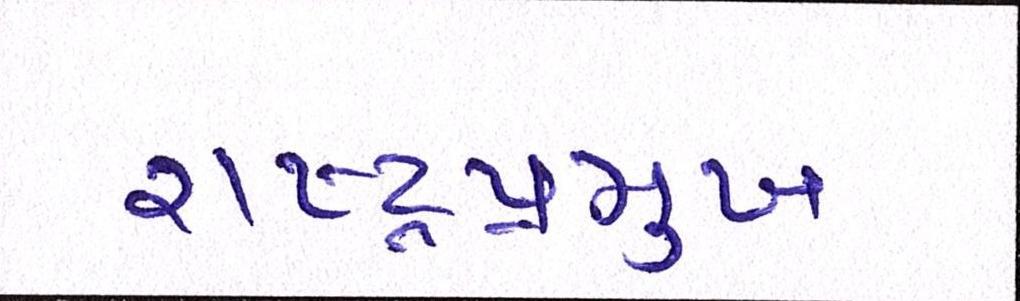 રાષ્ટ્રપ્રમુખ